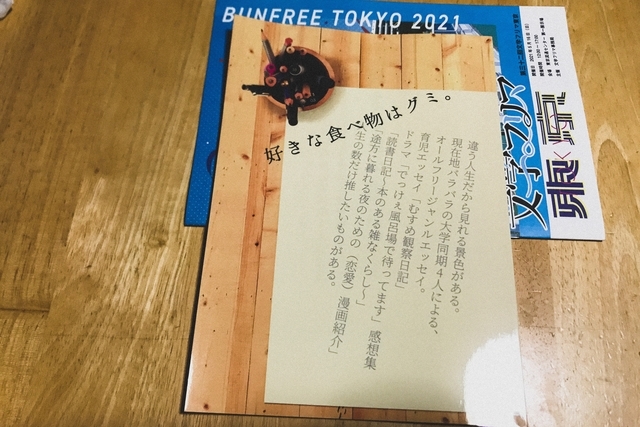 BUNFREE TOKYO 2021
文学フリマ
東京
好きな食べ物はグミ。
違う人生だから見れる景色がある。
現在地バラバラの大学同期4人による、
オールフリージャンルエッセイ。
育児エッセイ「むすめ観察日記」
ドラマ「でっけぇ風呂場で待ってます」感想集
「読書日記〜本のある雑なくらし〜」
「途方に暮れる夜のための（恋愛）漫画紹介」
生の数だけ推したいものがある。